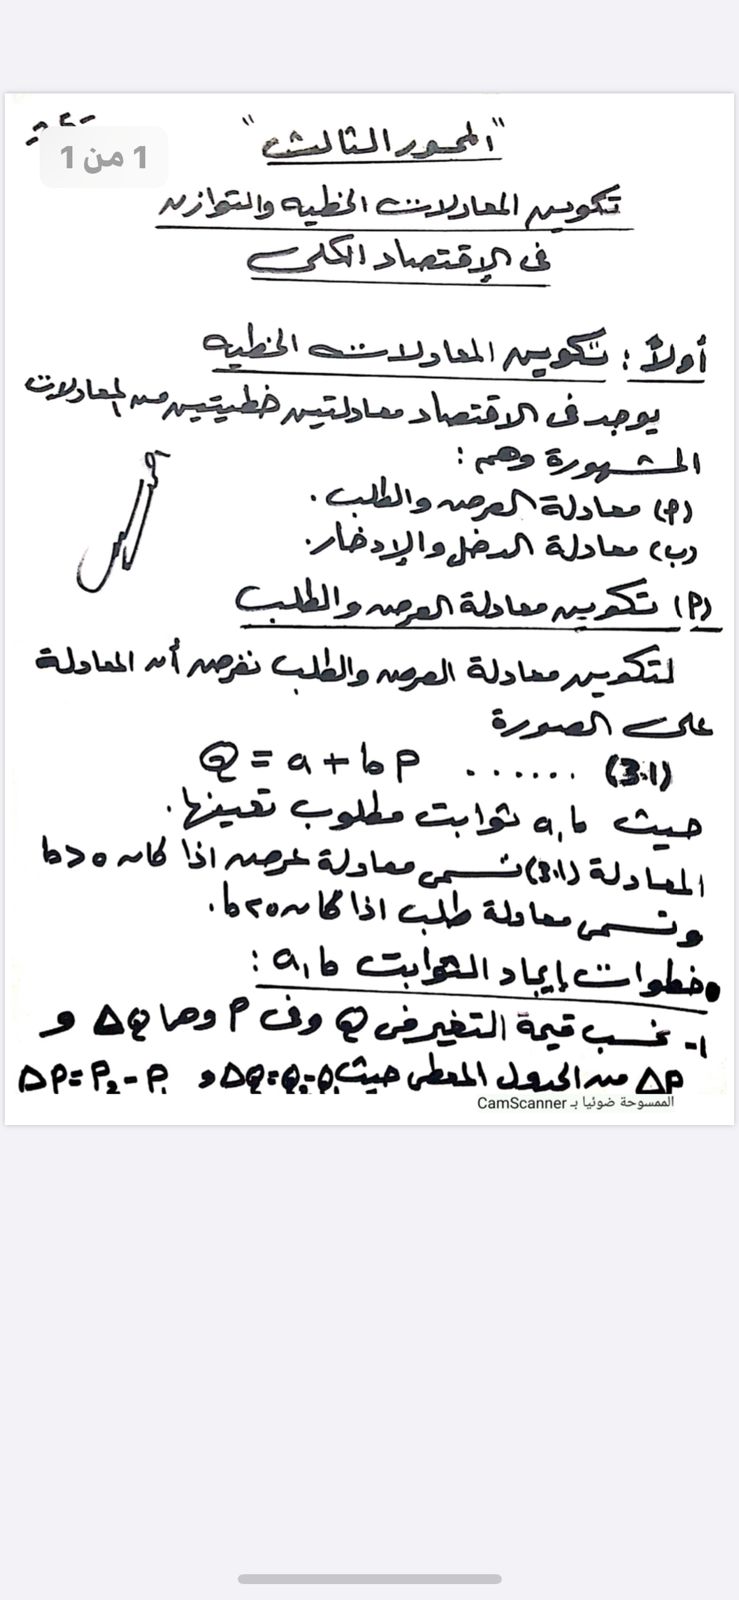 1 من 1
"المحور الثالث"
تكوين المعادلات الخطيه والتوازن
فى الإقتصاد الكلى
أولاً : تكوين المعادلات الخطيه
يوجد فى الاقتصاد معادلتين خطيتين من المعادلات
المشهورة وهم :
(P) معادلة العرض والطلب .
(ب) معادلة الدخل والإدخار.
(P) تكوين معادلة العرض والطلب
لتكوين معادلة العرض والطلب نفرض أن المعادلة
على الصورة
Q = a + b P ...... (3.1)
حيث a, b ثوابت مطلوب تعيينها.
المعادلة (3.1) تسمى معادلة عرض اذا كان b > 0
وتسمى معادلة طلب اذا كان b < 0.
• خطوات إيجاد الثوابت a, b :
1- نحسب قيمة التغير فى Q وفى P وهما ΔQ و
ΔP من الجدول المعطى حيث ΔQ = Q₂ - Q₁ و ΔP = P₂ - P₁
الممسوحة ضوئيا بـ CamScanner